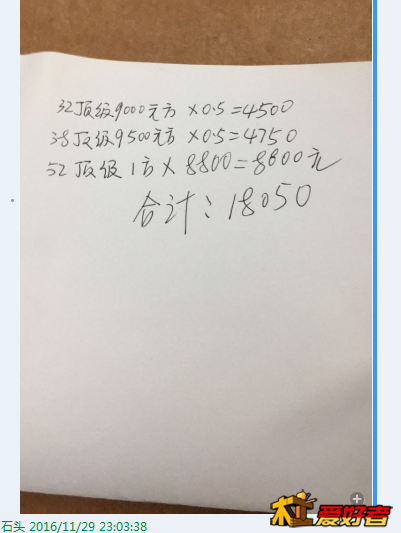 32顶级9000元方 ×0.5=4500
38顶级9500元方 ×0.5=4750
52顶级1方×8800=8800元
合计：18050
木工爱好者
石头 2016/11/29 23:03:38